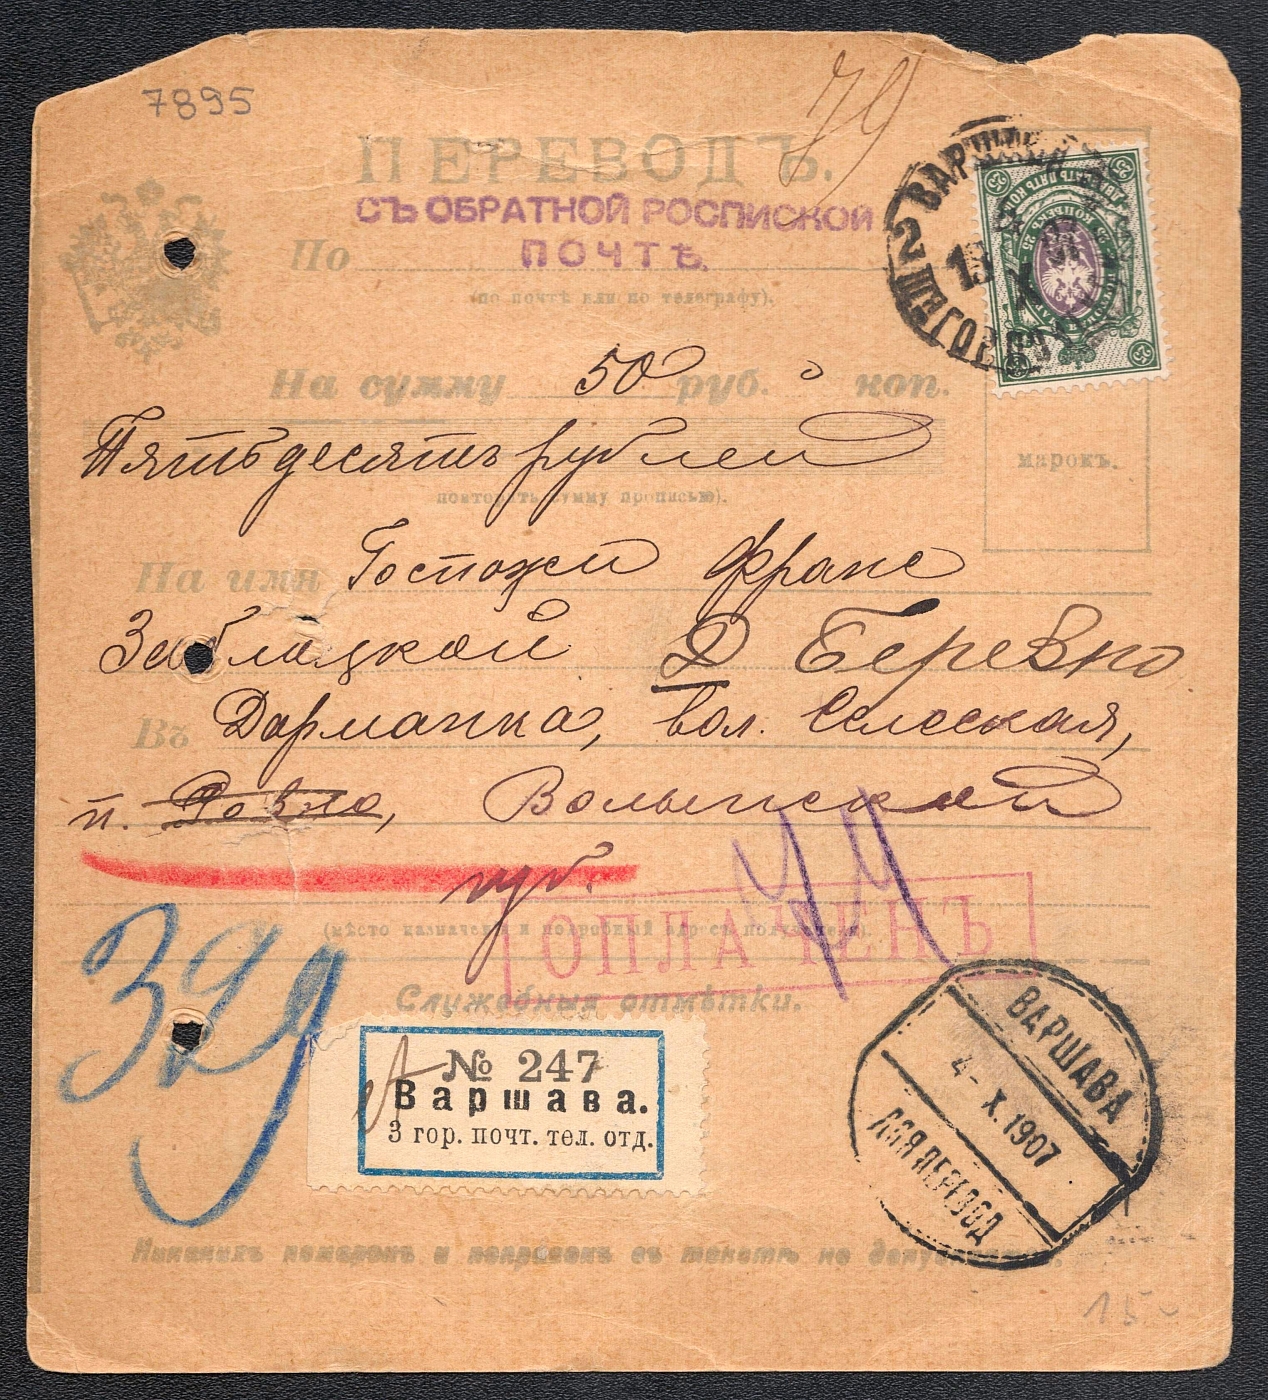 7895
79
ПЕРЕВОДЪ.
СЪ ОБРАТНОЙ РОСПИСКОЙ
По ПОЧТѢ.
(по почтѣ или по телеграфу).
ВАРШАВА
На сумму 50 руб. 0 коп.
Пятьдесятъ рублей
марокъ.
повторить сумму прописью).
На имя Госпожи Франс
Заблоцкой Д Беревно
Въ Дорманка, вол. Селесская,
п. Ровно, Волынской
губ.
ОПЛАЧЕНЪ
(мѣсто назначенія и подробный адресъ получателя).
Служебныя отмѣтки.
329
№ 247
Варшава.
3 гор. почт. тел. отд.
ВАРШАВА
4-X.1907
ДЛЯ ПЕРЕВОД
Никакихъ помарокъ и поправокъ въ текстѣ не допускается.
15-